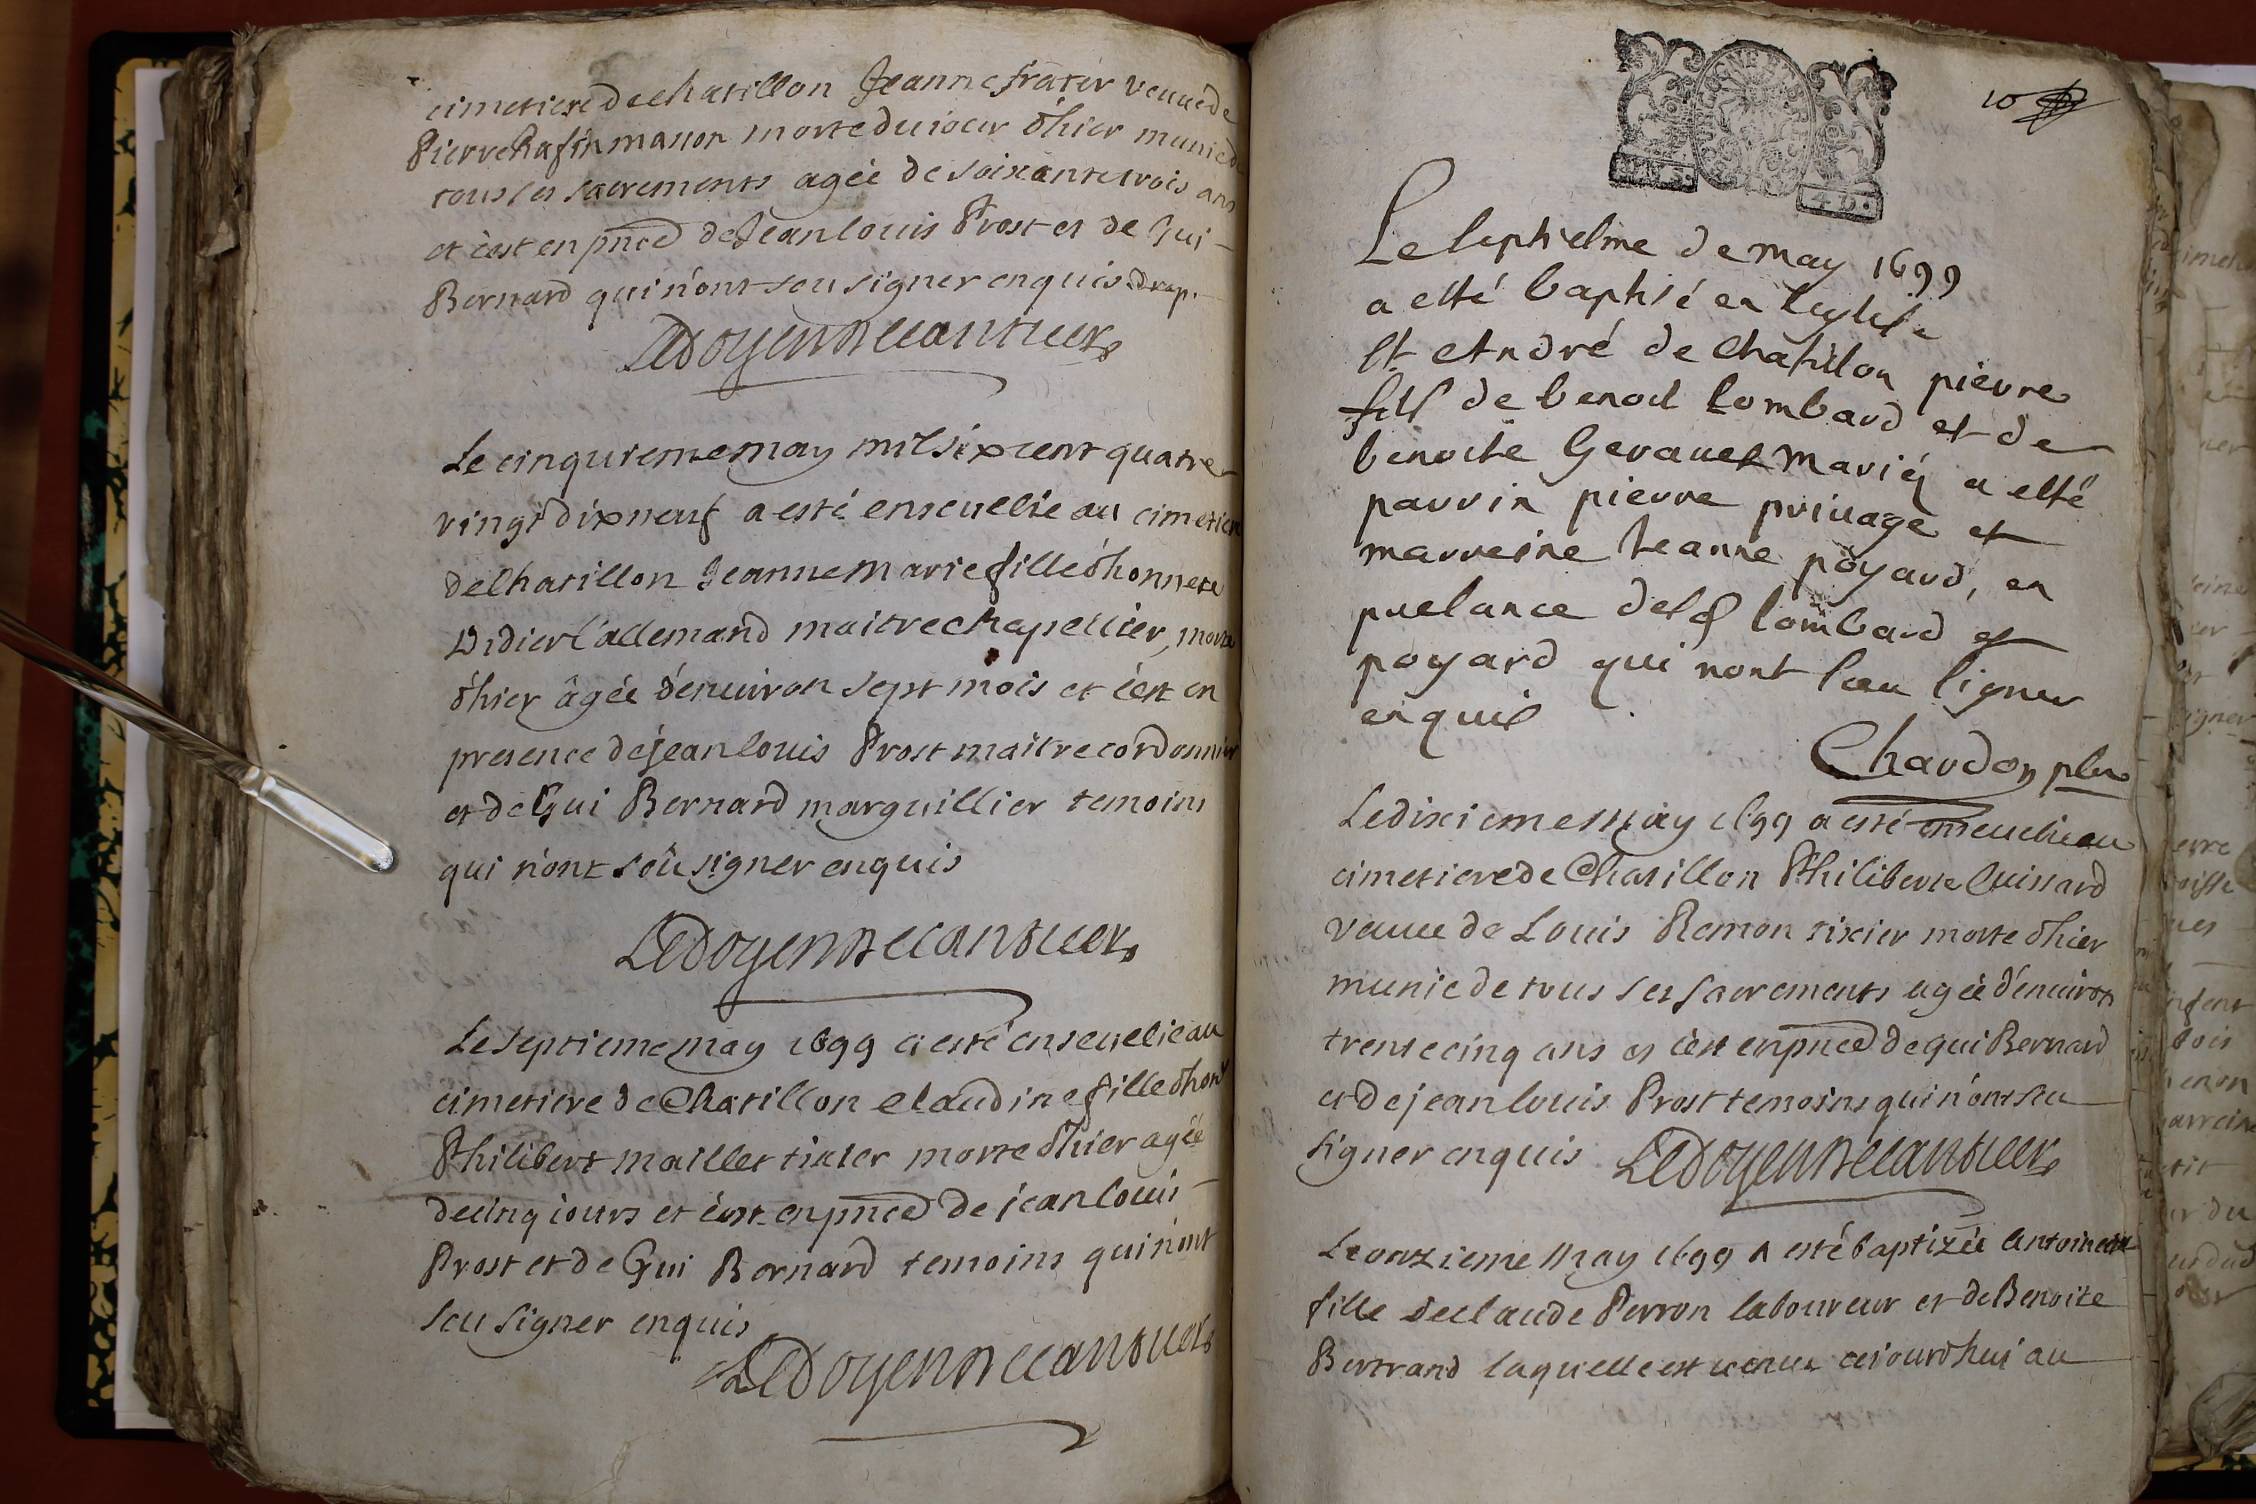 cimetiere de chatillon Jeanne frater veuue de
Pierre Chafin masson morte du iour d'hier munie de
tous ses sacrements agée de soixante trois ans
et c'est en pnce de Jean louis Prost et de Gui
Bernard qui n'ont seu signer enquis
Le cinquieme may mil six cent quatre
vingt dix neuf a esté enseuelie au cimetiere
de Chatillon Jeanne Marie fille d'honnete
Didier l'allemand maitre chapellier, morte
d'hier âgée d'enuiron sept mois et c'est en
presence de jean louis Prost maitre cordonnier
et de Gui Bernard marguillier temoins
qui n'ont sçu signer enquis
Le septieme may 1699 a esté enseuelie au
cimetiere de Chatillon claudine fille d'hont
Philibert maillet tixier morte d'hier agée
de cinq iours et c'est en pnce de jean louis
Prost et de Gui Bernard temoins qui n'ont
seu signer enquis
10
4 D.
Le septiesme de may 1699
a esté baptisé en leglise
st André de Chatillon pierre
fils de benoit lombard et de
benoite Gerauet mariés a esté
parrin pierre priuage et
marreine Jeanne poyard, en
presance desd lombard et
poyard qui nont sceu signer
enquis
Chardon pbre
Le dixieme may 1699 a esté enseuelie au
cimetiere de Chatillon Philiberte Cuissard
veuue de Louis Remon tixier morte d'hier
munie de tous ses sacrements agée d'enuiron
trente cinq ans et c'est en pnce de gui Bernard
et de jean louis Prost temoins qui n'ont seu
signer enquis
Le onzieme may 1699 a esté baptizée
fille de claude Perron laboureur et de Benoite
Bertrand laquelle est venue ce iourd'hui au